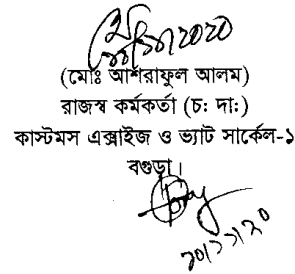 (মোঃ আশরাফুল আলম)
রাজস্ব কর্মকর্তা (চ: দা:)
কাস্টমস এক্সাইজ ও ভ্যাট সার্কেল-১
বগুড়া।